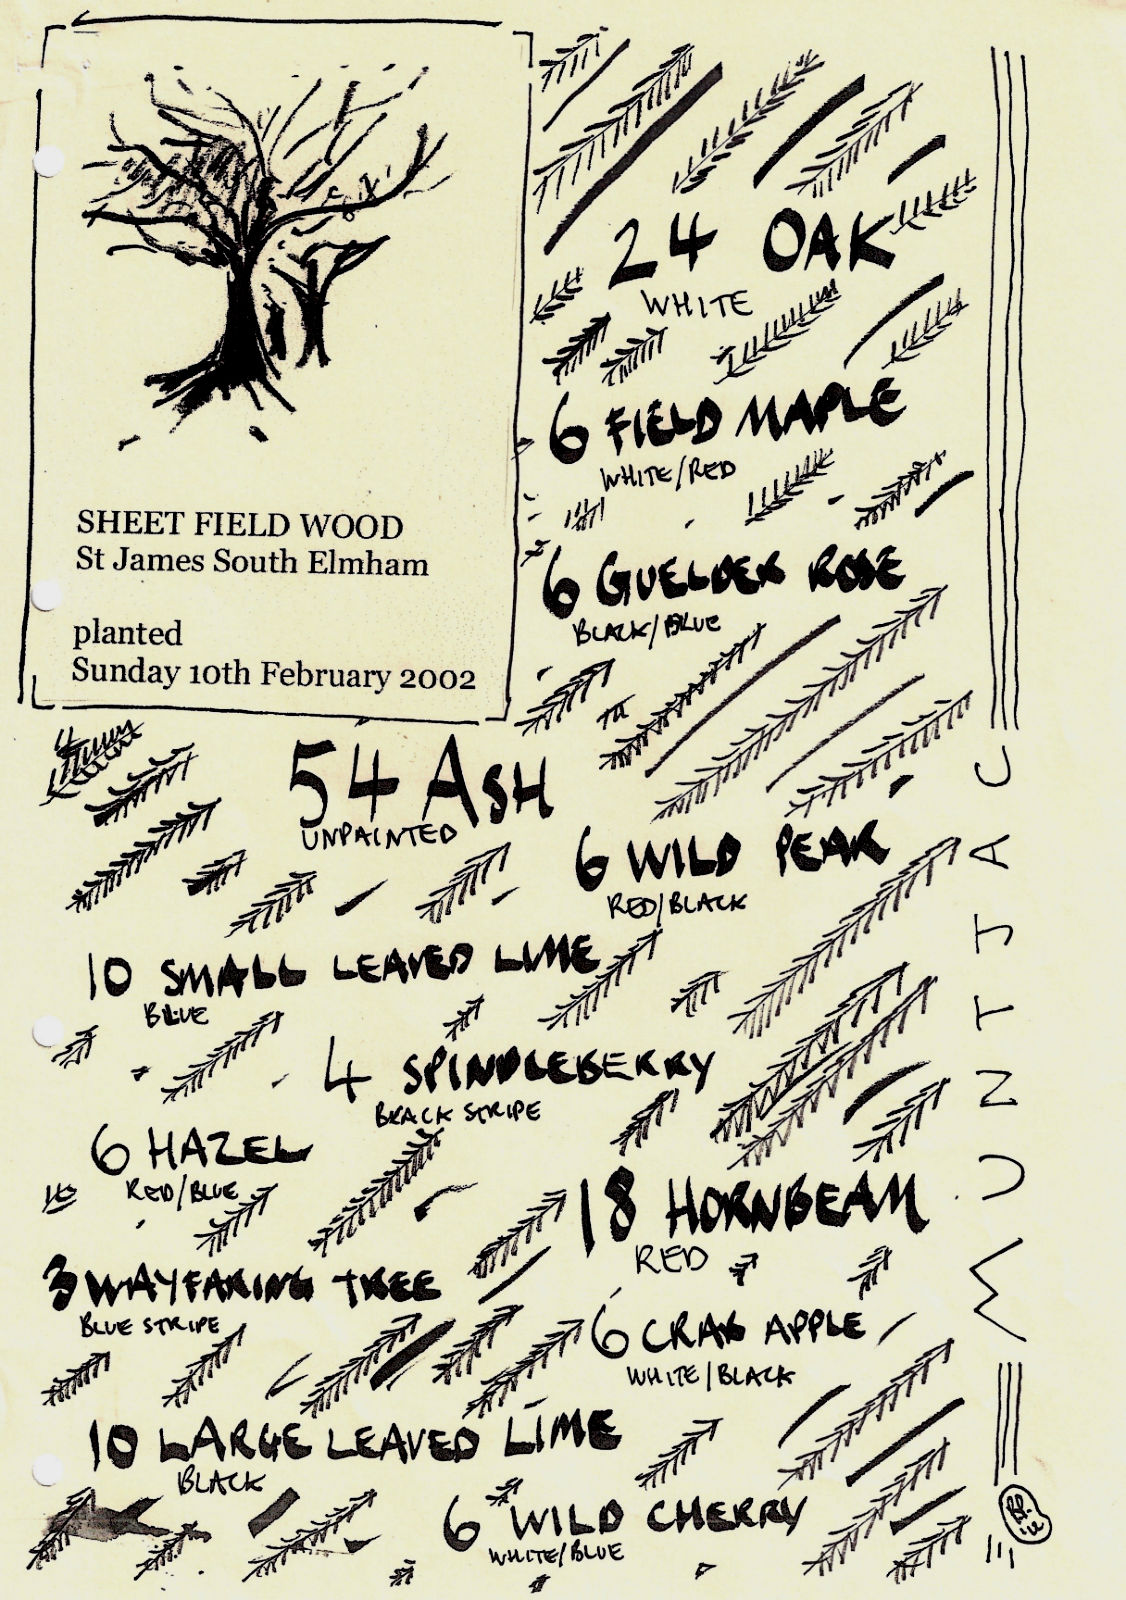 SHEET FIELD WOOD
St James South Elmham
planted
Sunday 10th February 2002
24 OAK
WHITE
6 FIELD MAPLE
WHITE/RED
6 GUELDER ROSE
BLACK/BLUE
54 ASH
UNPAINTED
6 WILD PEAR
RED/BLACK
10 SMALL LEAVED LIME
BLUE
4 SPINDLEBERRY
BLACK STRIPE
6 HAZEL
RED/BLUE
18 HORNBEAM
RED
3 WAYFARING TREE
BLUE STRIPE
6 CRAB APPLE
WHITE/BLACK
10 LARGE LEAVED LIME
BLACK
6 WILD CHERRY
WHITE/BLUE
MUNTJAC